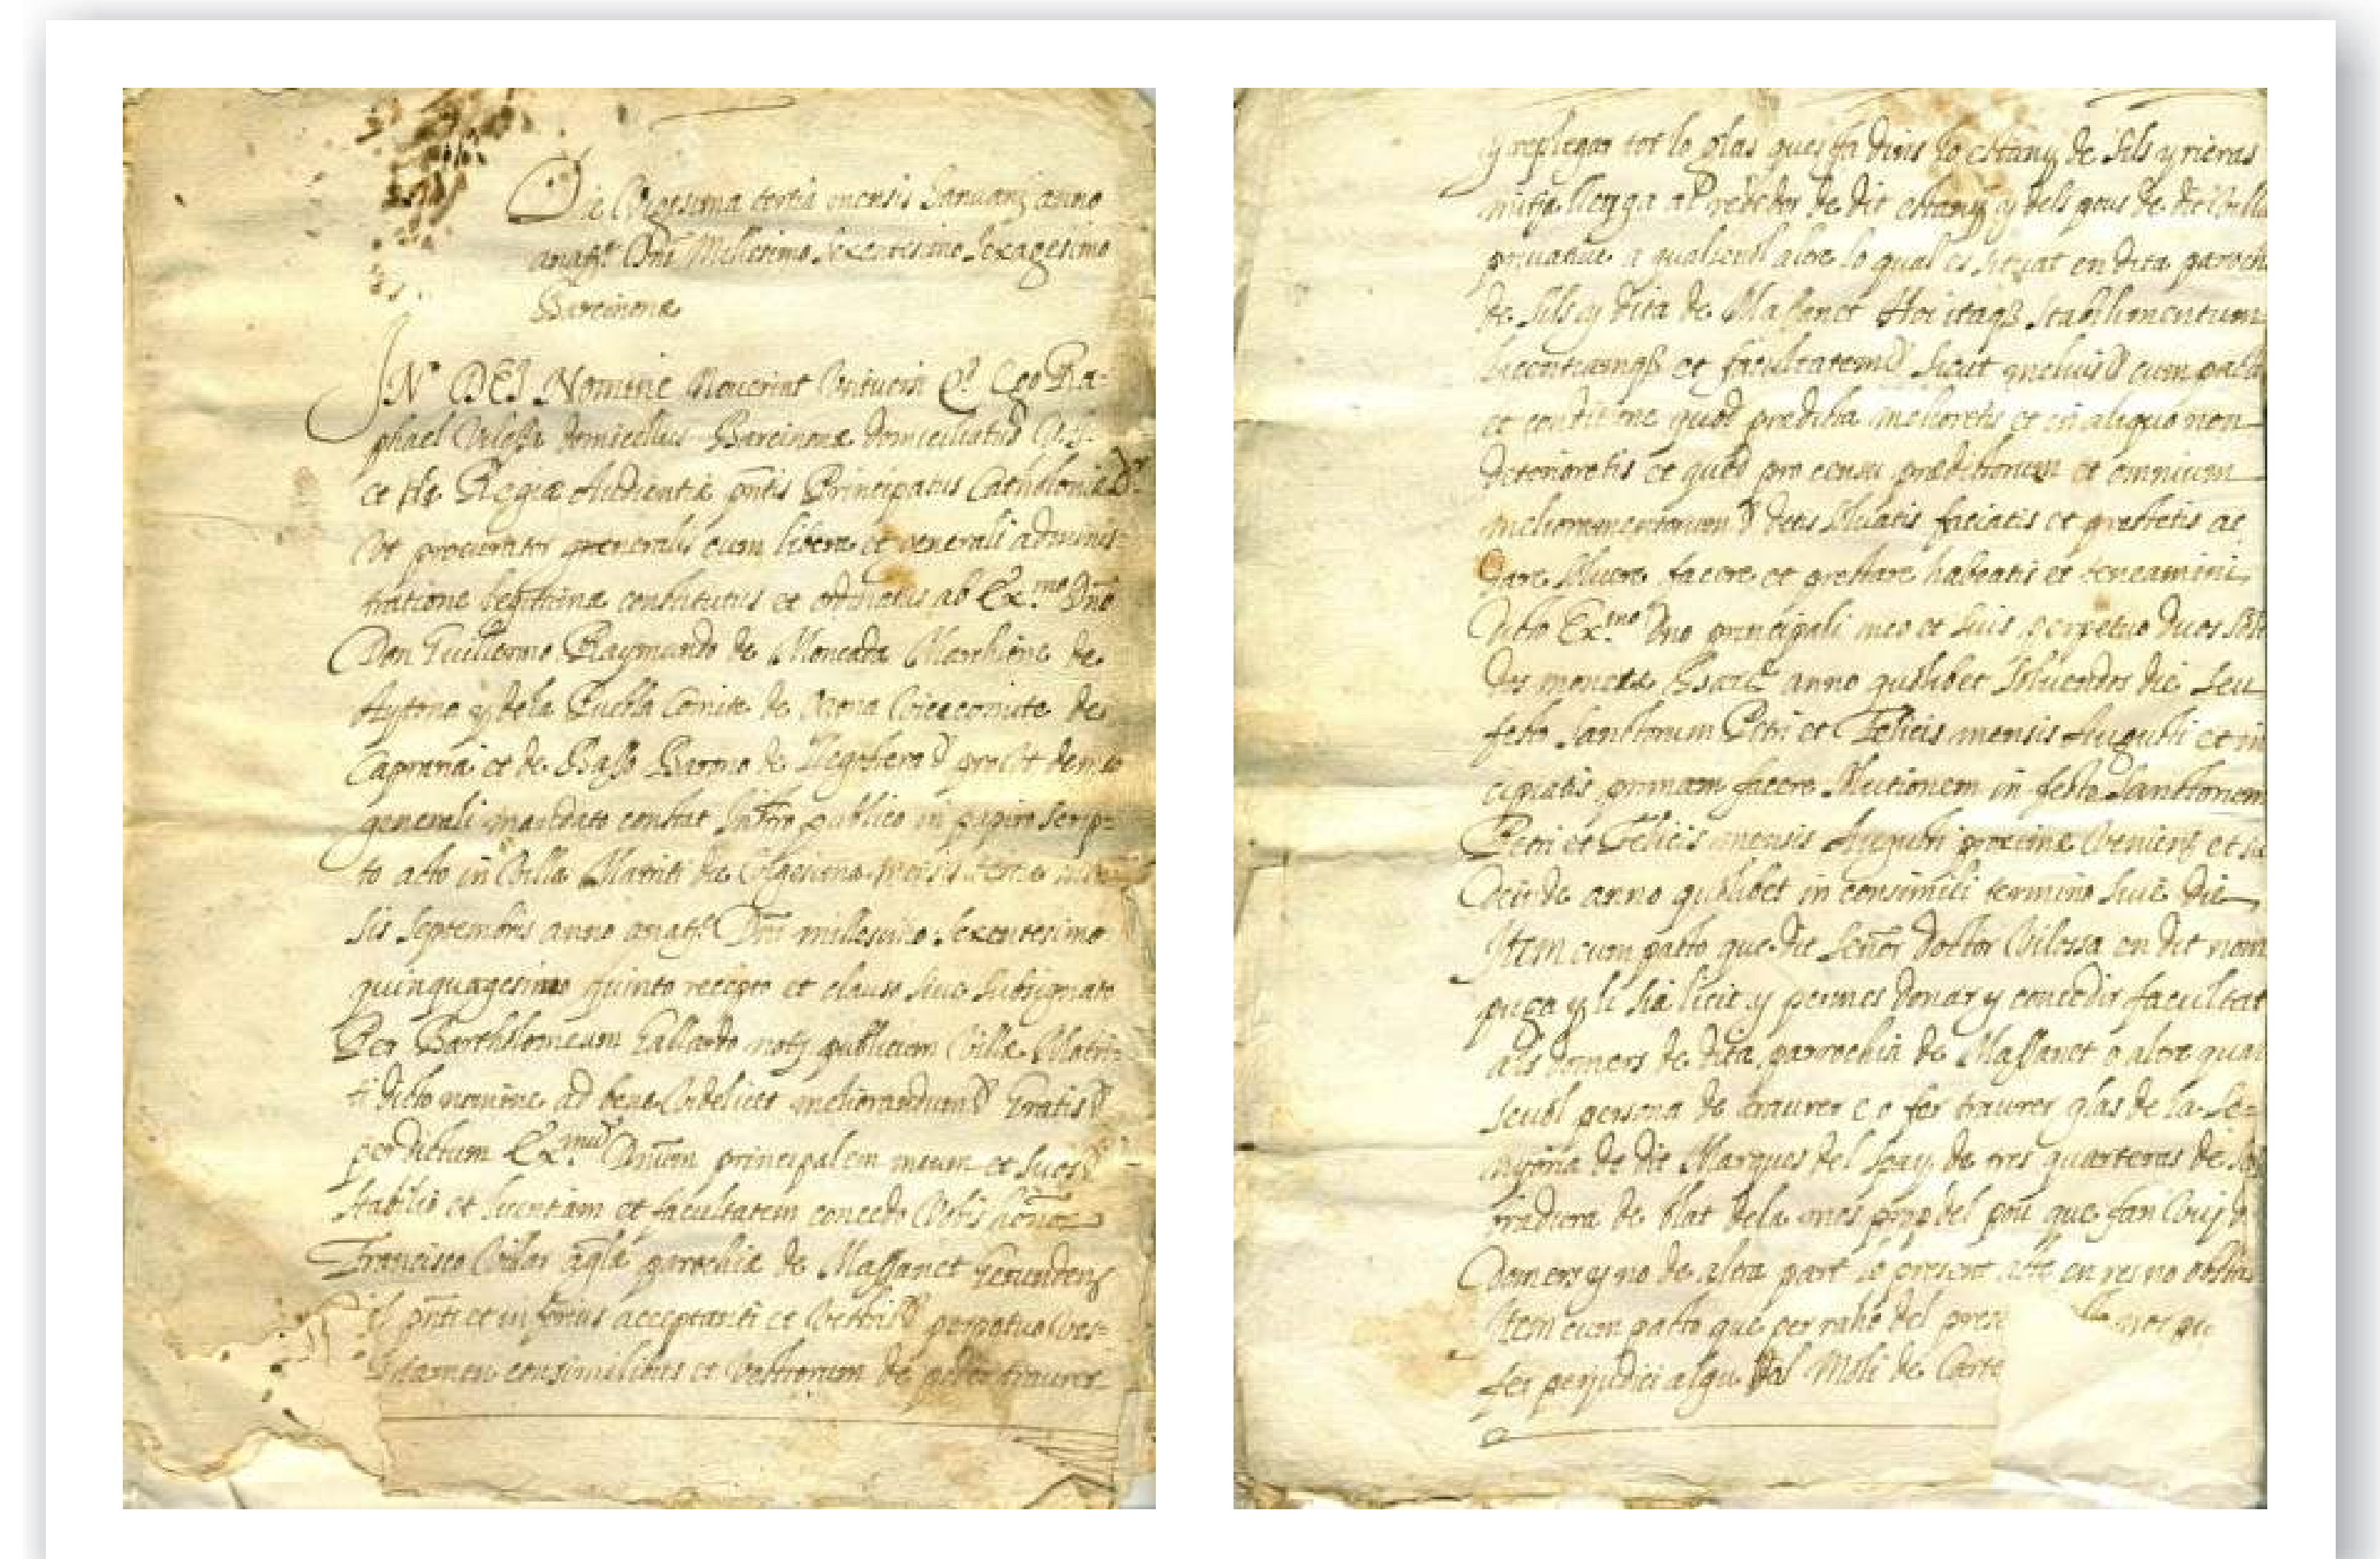 Die Vigesima tertia mensis Januarij anno
a natte Dni Millesimo sexcentesimo sexagesimo
Barcinonæ
IN DEI Nomine Noverint Universi Q. Ego Ra=
phael Vilossa domicellus Barcinonæ domiciliatus
et Regiæ Audientiæ pntis Principatus Cathaloniæ
Ut procurator generalis cum libera et generali adminis=
tratione legittime constitutus et ordinatus ab Ex.mo Dno
Don Guillermo Raymundo de Moncada Marchione de
Aytona y de la Puebla Comite de Ozona Vicecomite de
Caprera et de Bas Barono de prout de meo
generali mandato constat Instro publico in papiro scrip=
to acto in Villa Matriti die Vigesima
sis septembris anno a natte Dni millesimo sexcentesimo
quinquagesimo quinto recepto et clauso sive subsignato
Per Bartholomeum Gallardo notm publicum Villæ Matri=
ti dicto nomine ad bene videlicet meliorandum Gratis
per dictum Ex.mum Dnum principalem meum et suos
stabilio et licentiam et facultatem concedo Vobis
Francisco Vilar parochiæ de Massanet Gerunden
pnti et inferius acceptanti et Vestris perpetuo Ves=
consimilibus et Vestrorum de poder traurer
y replegar tot lo glas ques fa dins lo estany de Sils y rieras
mitja llegua al rededor de dit estany y dels pous de dit
privative a qualsevol altre lo qual es situat en dita paroch
de Sils y dita de Massanet Hoc itaq stabilimentum
licentiamq et facultatem sicut melius cum pacto
et conditione quod prædicta melioretis et in aliquo non
deterioretis et quod pro censu prædictorum et omnium
meliorementorum detis solvatis faciatis et prestetis ac
dare solvere facere et prestare habeatis et teneamini
dicto Ex.mo Dno principali meo et suis perpetuo duos soli
dos monetæ anno quolibet solvendos die seu
festo Sanctorum Petri et Felicis mensis Augusti et in
cipiatis primam facere solutionem in festo Sanctorum
Petri et Felicis mensis Augusti proxime venient et
deinde anno quolibet in consimili termino sive die
Item cum pacto que dit Señor doctor Vilossa en dit nom
puga y li sia licit y permes donar y concedir facultat
als domers de dita parrochia de Massanet o altre qual
sevol persona de traurer e o fer traurer glas de la Se=
nyoria de dit Marques del spay de tres quarteras de
de blat dela mes prop del pou que fan vuy
Domers y no de altra part lo present acte en res no obsta
Item cum pacto que per raho del pres
fer perjudici algu del Moli de